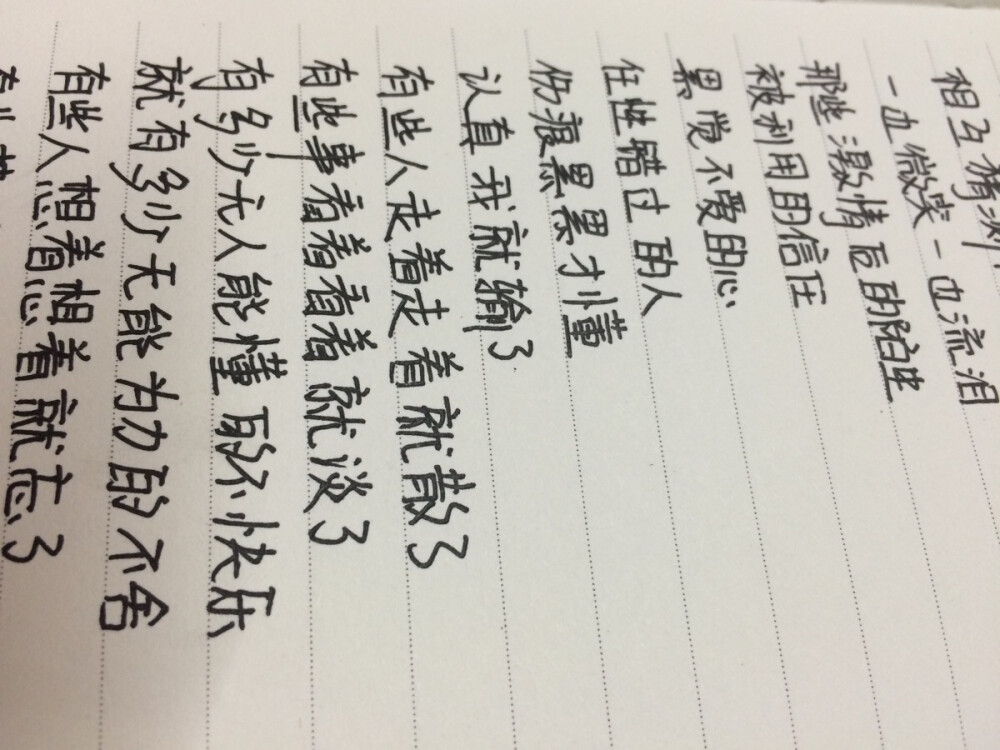 相互猜
一边微笑一边流泪
那些激情后的陌生
被利用的信任
累觉不爱的心
任性错过的人
伤痕累累才懂
认真我就输了
有些人走着走着就散了
有些事看着看着就淡了
有多少无人能懂的不快乐
就有多少无能为力的不舍
有些人想着想着就忘了